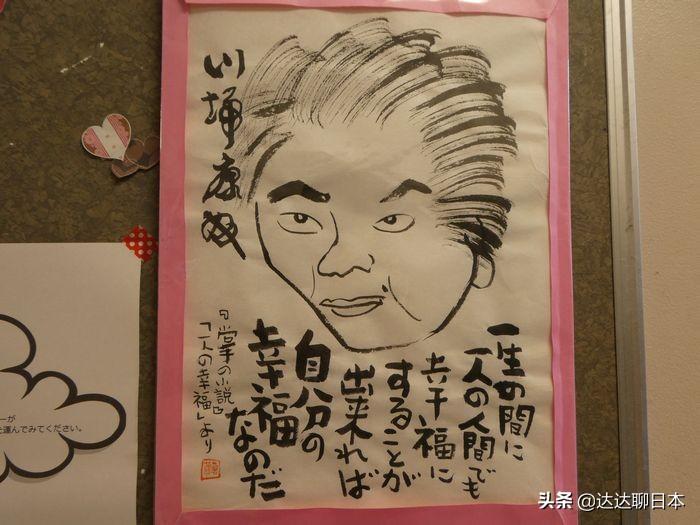 川端康成
一生の間に
一人の人間でも
幸福に
することが
出来れば
自分の
幸福なのだ
『掌の小説』
「一人の幸福」より
ーが
運んでみてください。
头条 @达达聊日本